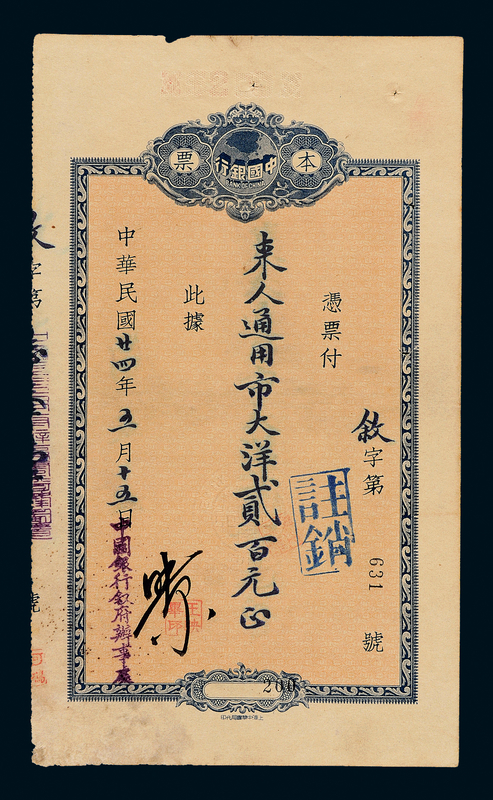 本票
中國銀行
BANK OF CHINA
敘字第631號
憑票付
來人通用市大洋貳百元正
此據
中華民國廿四年五月十五日
中國銀行敘府辦事處
註銷
200
字第
號